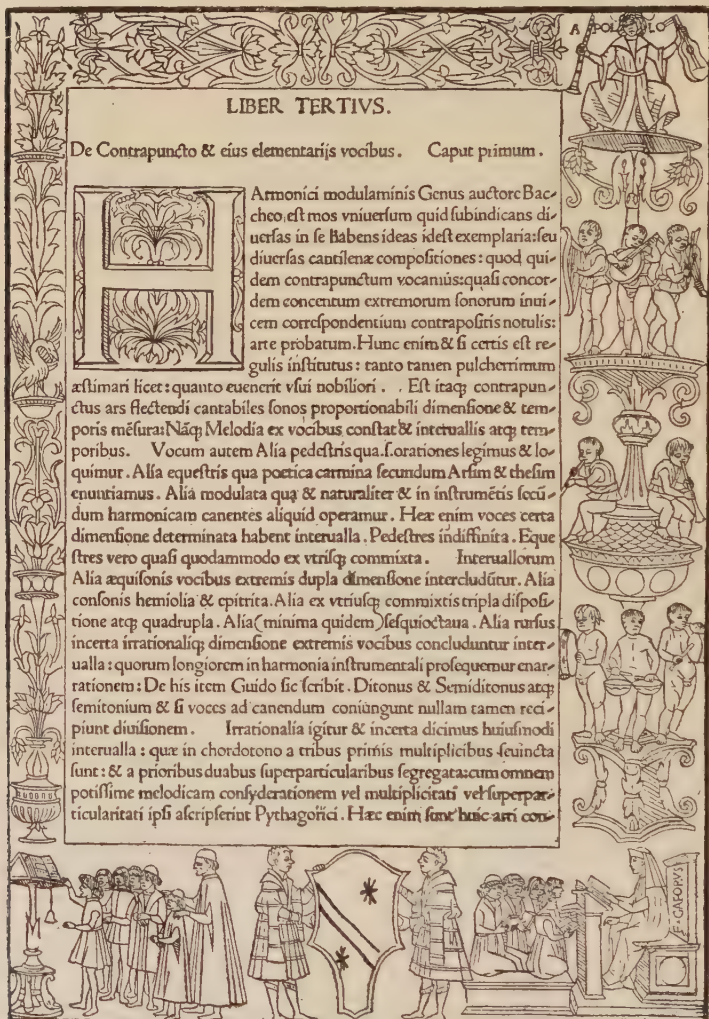 APOLLO
LIBER TERTIVS.
De Contrapuncto & eius elementarijs vocibus. Caput primum.
HArmonici modulaminis Genus auctore Bac-
cheo, est mos vniuersum quid subindicans di-
uersas in se habens ideas idest exemplaria: seu
diuersas cantilenæ compositiones: quod qui-
dem contrapunctum vocamus: quasi concor-
dem concentum extremorum sonorum inui-
cem correspondentium contrapositis notulis:
arte probatum. Hunc enim & si certis est re-
gulis institutus: tanto tamen pulcherrimum
æstimari licet: quanto euenerit vsui nobiliori. . Est itaq; contrapun-
ctus ars flectendi cantabiles sonos proportionabili dimensione & tem-
poris mēsura: Nāq; Melodia ex vocibus constat & interuallis atq; tem-
poribus. Vocum autem Alia pedestris qua .s. orationes legimus & lo-
quimur. Alia equestris qua poetica carmina secundum Arsim & thesim
enuntiamus. Alia modulata qua & naturaliter & in instrumētis secū-
dum harmonicam canentes aliquid operamur. Heæ enim voces certa
dimensione determinata habent interualla. Pedestres indiffinita. Eque
stres vero quasi quodammodo ex vtrisq; commixta. Interuallorum
Alia æquisonis vocibus extremis dupla dimensione intercludūtur. Alia
consonis hemiolia & epitrita. Alia ex vtriusq; commixtis tripla disposi-
tione atq; quadrupla. Alia (minima quidem) sesquioctaua. Alia rursus
incerta irrationaliq; dimensione extremis vocibus concluduntur inter-
ualla: quorum longiorem in harmonia instrumentali prosequemur enar-
rationem: De his item Guido sic scribit. Ditonus & Semiditonus atq;
semitonium & si voces ad canendum coniungunt nullam tamen reci-
piunt diuisionem. Irrationalia igitur & incerta dicimus huiusmodi
interualla: quæ in chordotono a tribus primis multiplicibus seuincta
sunt: & a prioribus duabus superparticularibus segregata: cum omnem
potissime melodicam consyderationem vel multiplicitati vel superpar-
ticularitati ipsi ascripserint Pythagorici. Hæc enim sunt huic arti con-
F. GAFORVS